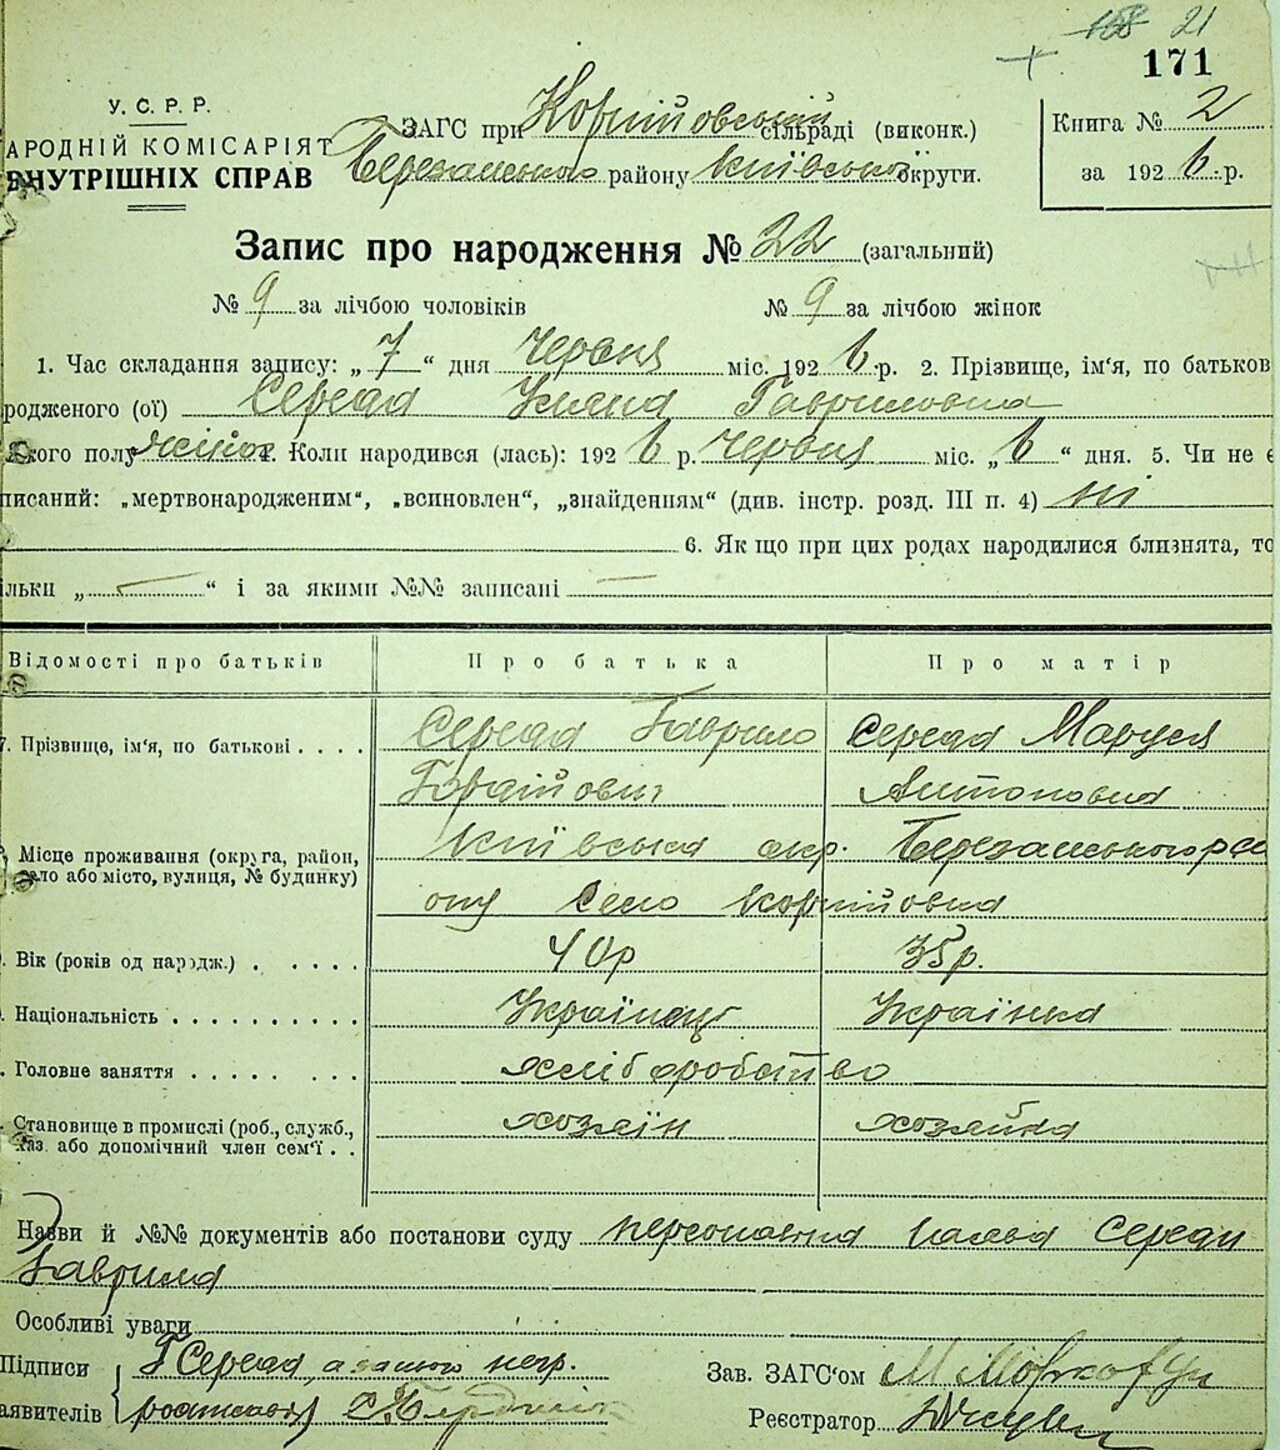 158 21
171
У. С. Р. Р.
АРОДНІЙ КОМІСАРІЯТ
ВНУТРІШНІХ СПРАВ
ЗАГС при Корнійовській сільраді (виконк.)
Березанського району Київської округи.
Книга № 2
за 1926 р.
Запис про народження № 22 (загальний)
№ 9 за лічбою чоловіків № 9 за лічбою жінок
1. Час складання запису: „ 7 “ дня Червня міс. 1926 р. 2. Прізвище, ім‘я, по батьков
родженого (ої) Середа Улена Гавриловна
кого полу жіноч. 4. Коли народився (лась): 1926 р. Червня міс. „ 6 “ дня. 5. Чи не є
писаний: „мертвонародженим“, „всиновлен“, „знайденням“ (див. інстр. розд. III п. 4) ні
6. Як що при цих родах народилися близнята, то
ільки „ — “ і за якими №№ записані —
Відомості про батьків Про батька Про матір
7. Прізвище, ім‘я, по батькові . . . . Середа Гаврило Середа Маруся
Гордійович Антоновна
Місце проживання (округа, район, село або місто, вулиця, № будинку) Київська окр. Березанського рай
ону Село Корнійовка
. Вік (років од народж.) . . . . . 40р 35р.
. Національність . . . . . . . . . . Українець Українка
. Головне заняття . . . . . . . . хліборобство
. Становище в промислі (роб., служб., хазяїн Хозяйка
хаз. або допомічний член сем‘ї . .
Назви й №№ документів або постанови суду персональна заява Середи
Гаврила
Особливі уваги
Підписи Г Середа, а за його негр.
аявителів росписався
Зав. ЗАГС‘ом
Реєстратор